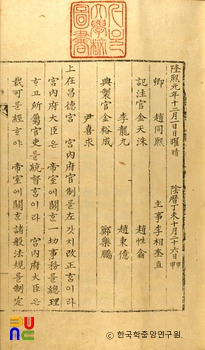 隆熙元年十二月一日日曜晴 陰曆丁未十月二十六日甲申
卿 趙同熙 主事李相奎直
記注官金天洙 趙性
李龍九 趙東億
典製官金裕成 鄭樂鵬
尹喜求
上在昌德宮 宮內府官制를左갓치改正ᄒᆞᆷ이라
宮內府大臣은 帝室에關ᄒᆞᆫ一切事務를總理
ᄒᆞ고所屬官吏를統督ᄒᆞᆷ이라 宮內府大臣은
裁可를經ᄒᆞ야 帝室에關ᄒᆞᆫ諸般法規를制定
한국학중앙연구원